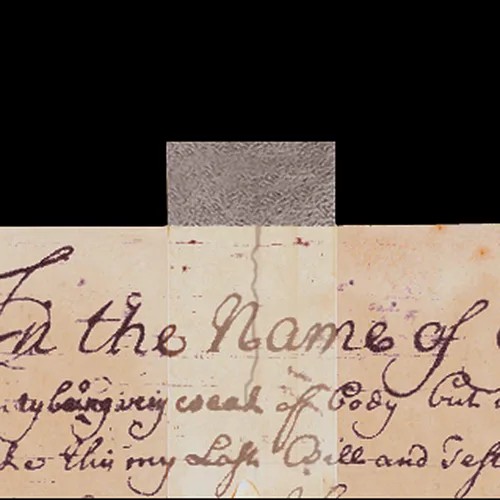 In the Name of
being very weak of Body but
this my Last Will and Test